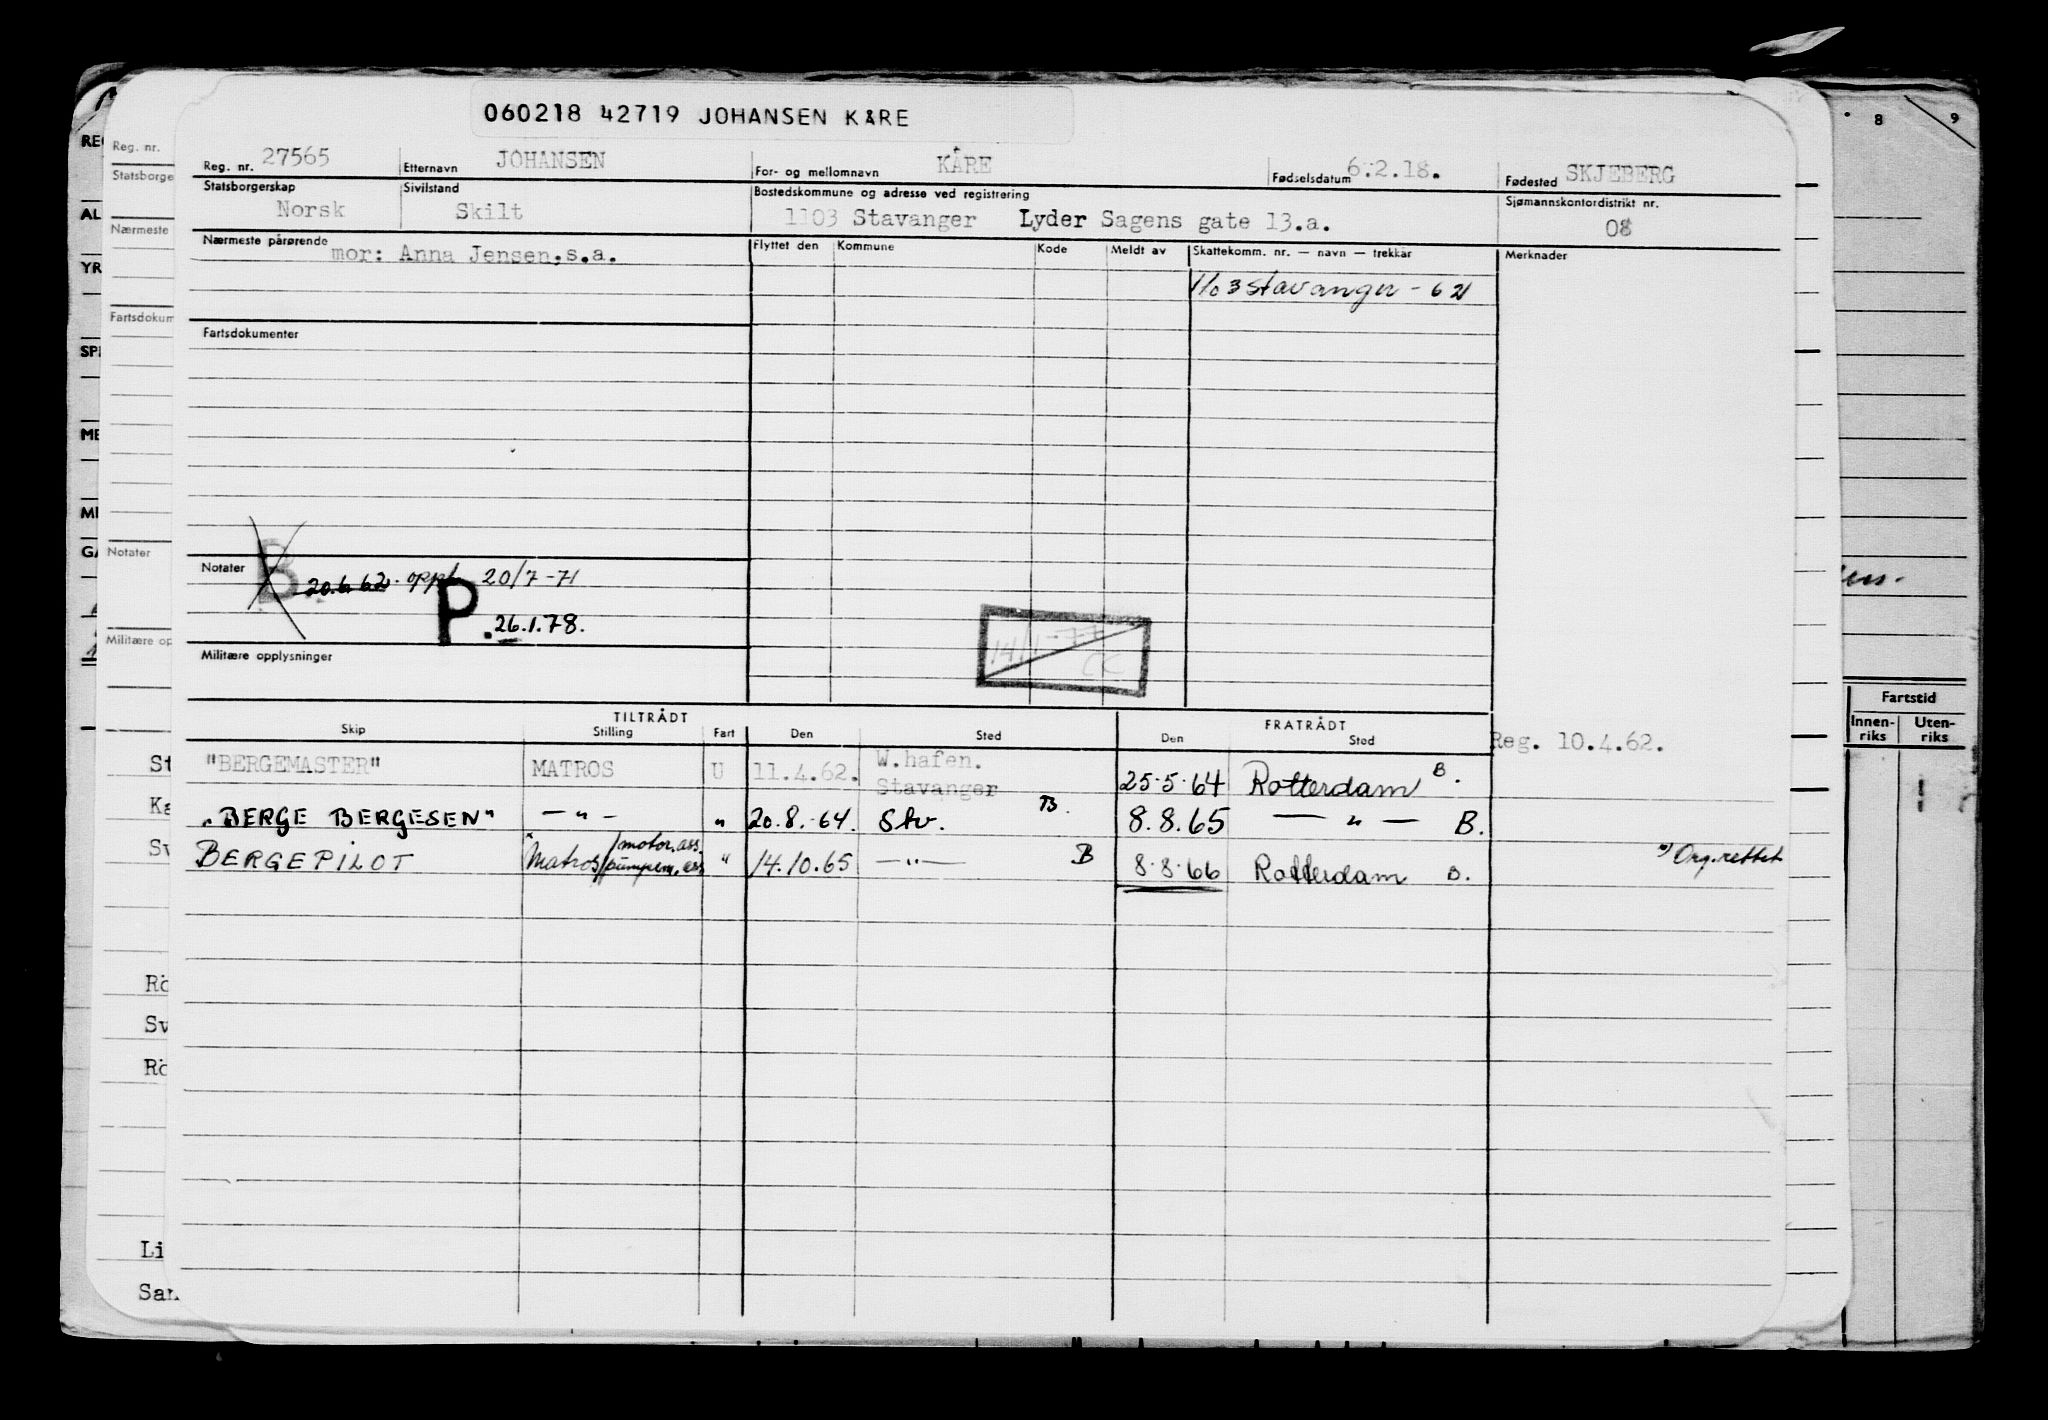 060218 42719 JOHANSEN KÅRE
Reg. nr. 27565 Etternavn JOHANSEN For- og mellomnavn KÅRE Fødselsdatum 6.2.18. Fødested SKJEBERG
Statsborgerskap Norsk Sivilstand Skilt Bostedskommune og adresse ved registrering 1103 Stavanger Lyder Sagens gate 13.a. Sjømannskontordistrikt nr. 08
Nærmeste pårørende mor: Anna Jensen, s.a. Flyttet den Kommune Kode Meldt av Skattekomm. nr. — navn — trekkår Merknader
1103 Stavanger - 62
Fartsdokumenter
Notater B 20.6.62. opph 20/7-71
P. 26.1.78.
14/1-77
CC
Militære opplysninger
TILTRÅDT FRATRÅDT
Skip Stilling Fart Den Sted Den Sted Reg. 10.4.62.
"BERGEMASTER" MATROS U 11.4.62. W.hafen. Stavanger 25.5.64 Rotterdam B.
"BERGE BERGESEN" — " — " 20.8.64. Stv. B. 8.8.65 — " — B.
BERGEPILOT Matros/motor.ass. /pumpem.ass " 14.10.65 — " — B 8.8.66 Rotterdam B. Org.rettet
Reg. nr.
Statsborge
Nærmeste
Fartsdokum
Notater
Militære op
REG
AL
YR
SPR
ME
MI
GA
St
Ka
Sv
Rö
Sv
Rö
Li
San
8 9
Fartstid
Innen-riks Uten-riks